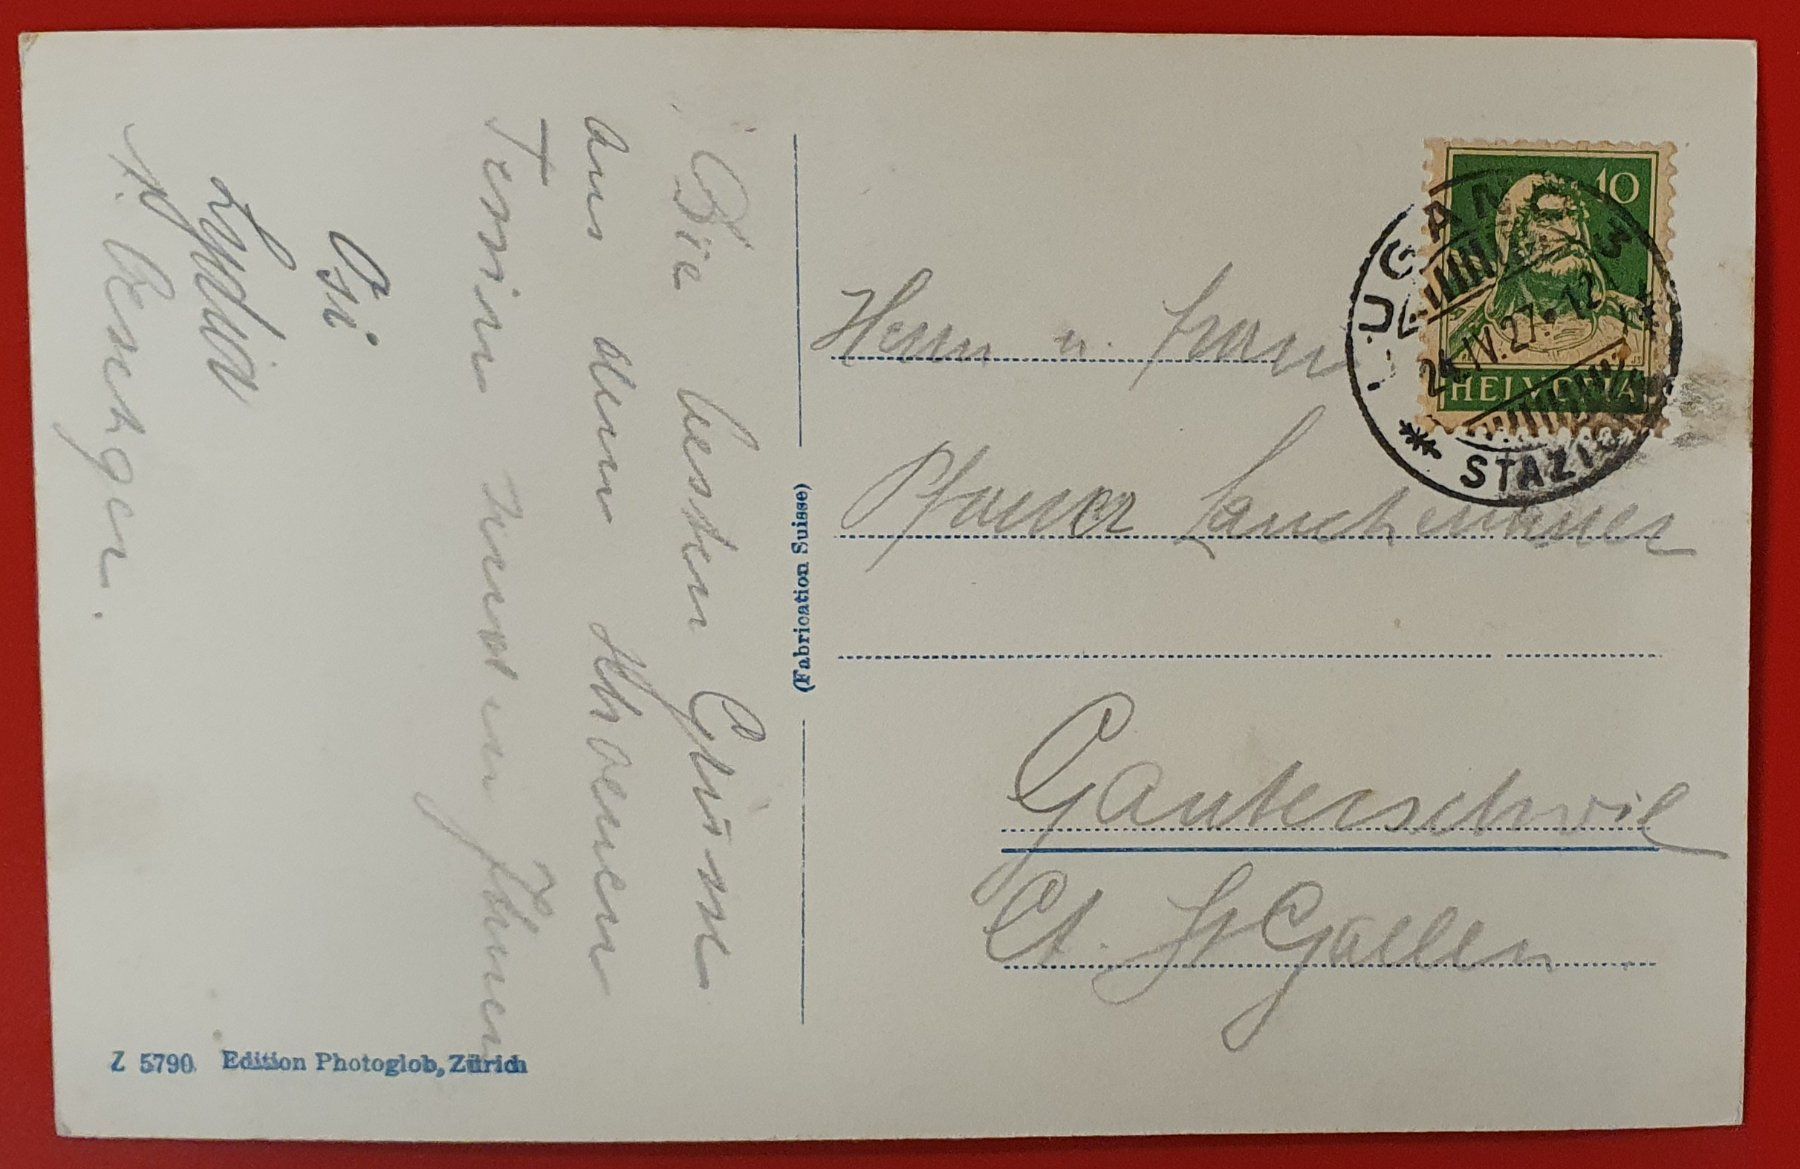 Die besten Grüsse
aus dem schoenen
Tessin sendet Ihnen
Osi
Lydia
Z 5790. Edition Photoglob, Zürich
(Fabrication Suisse)
10
HELVETIA
LUGANO 3
IV.27-12
STAZIONE
Herrn u. Frau
Pfarrer Lauchenauer
Ganterschwil
Ct. St Gallen